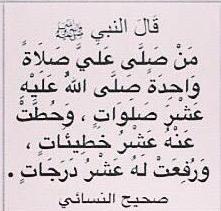 قَالَ النبي ﷺ
مَنْ صَلَّى عَلَيَّ صَلاَةً
وَاحِدَةً صَلَّى اللهُ عَلَيْهِ
عَشْرَ صَلَوَاتٍ ، وَحُطَّتْ
عَنْهُ عَشْرُ خَطِيئَاتٍ ،
وَرُفِعَتْ لَهُ عَشْرُ دَرَجَاتٍ .
صحيح النسائي